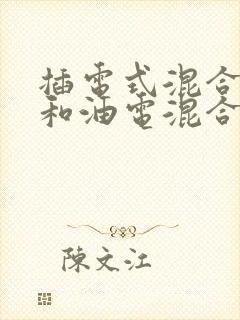 插電式混合
和油電混合
陳文江